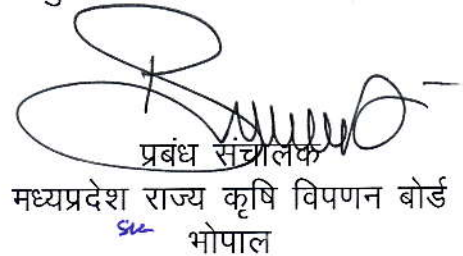 प्रबंध संचालक
मध्यप्रदेश राज्य कृषि विपणन बोर्ड
भोपाल